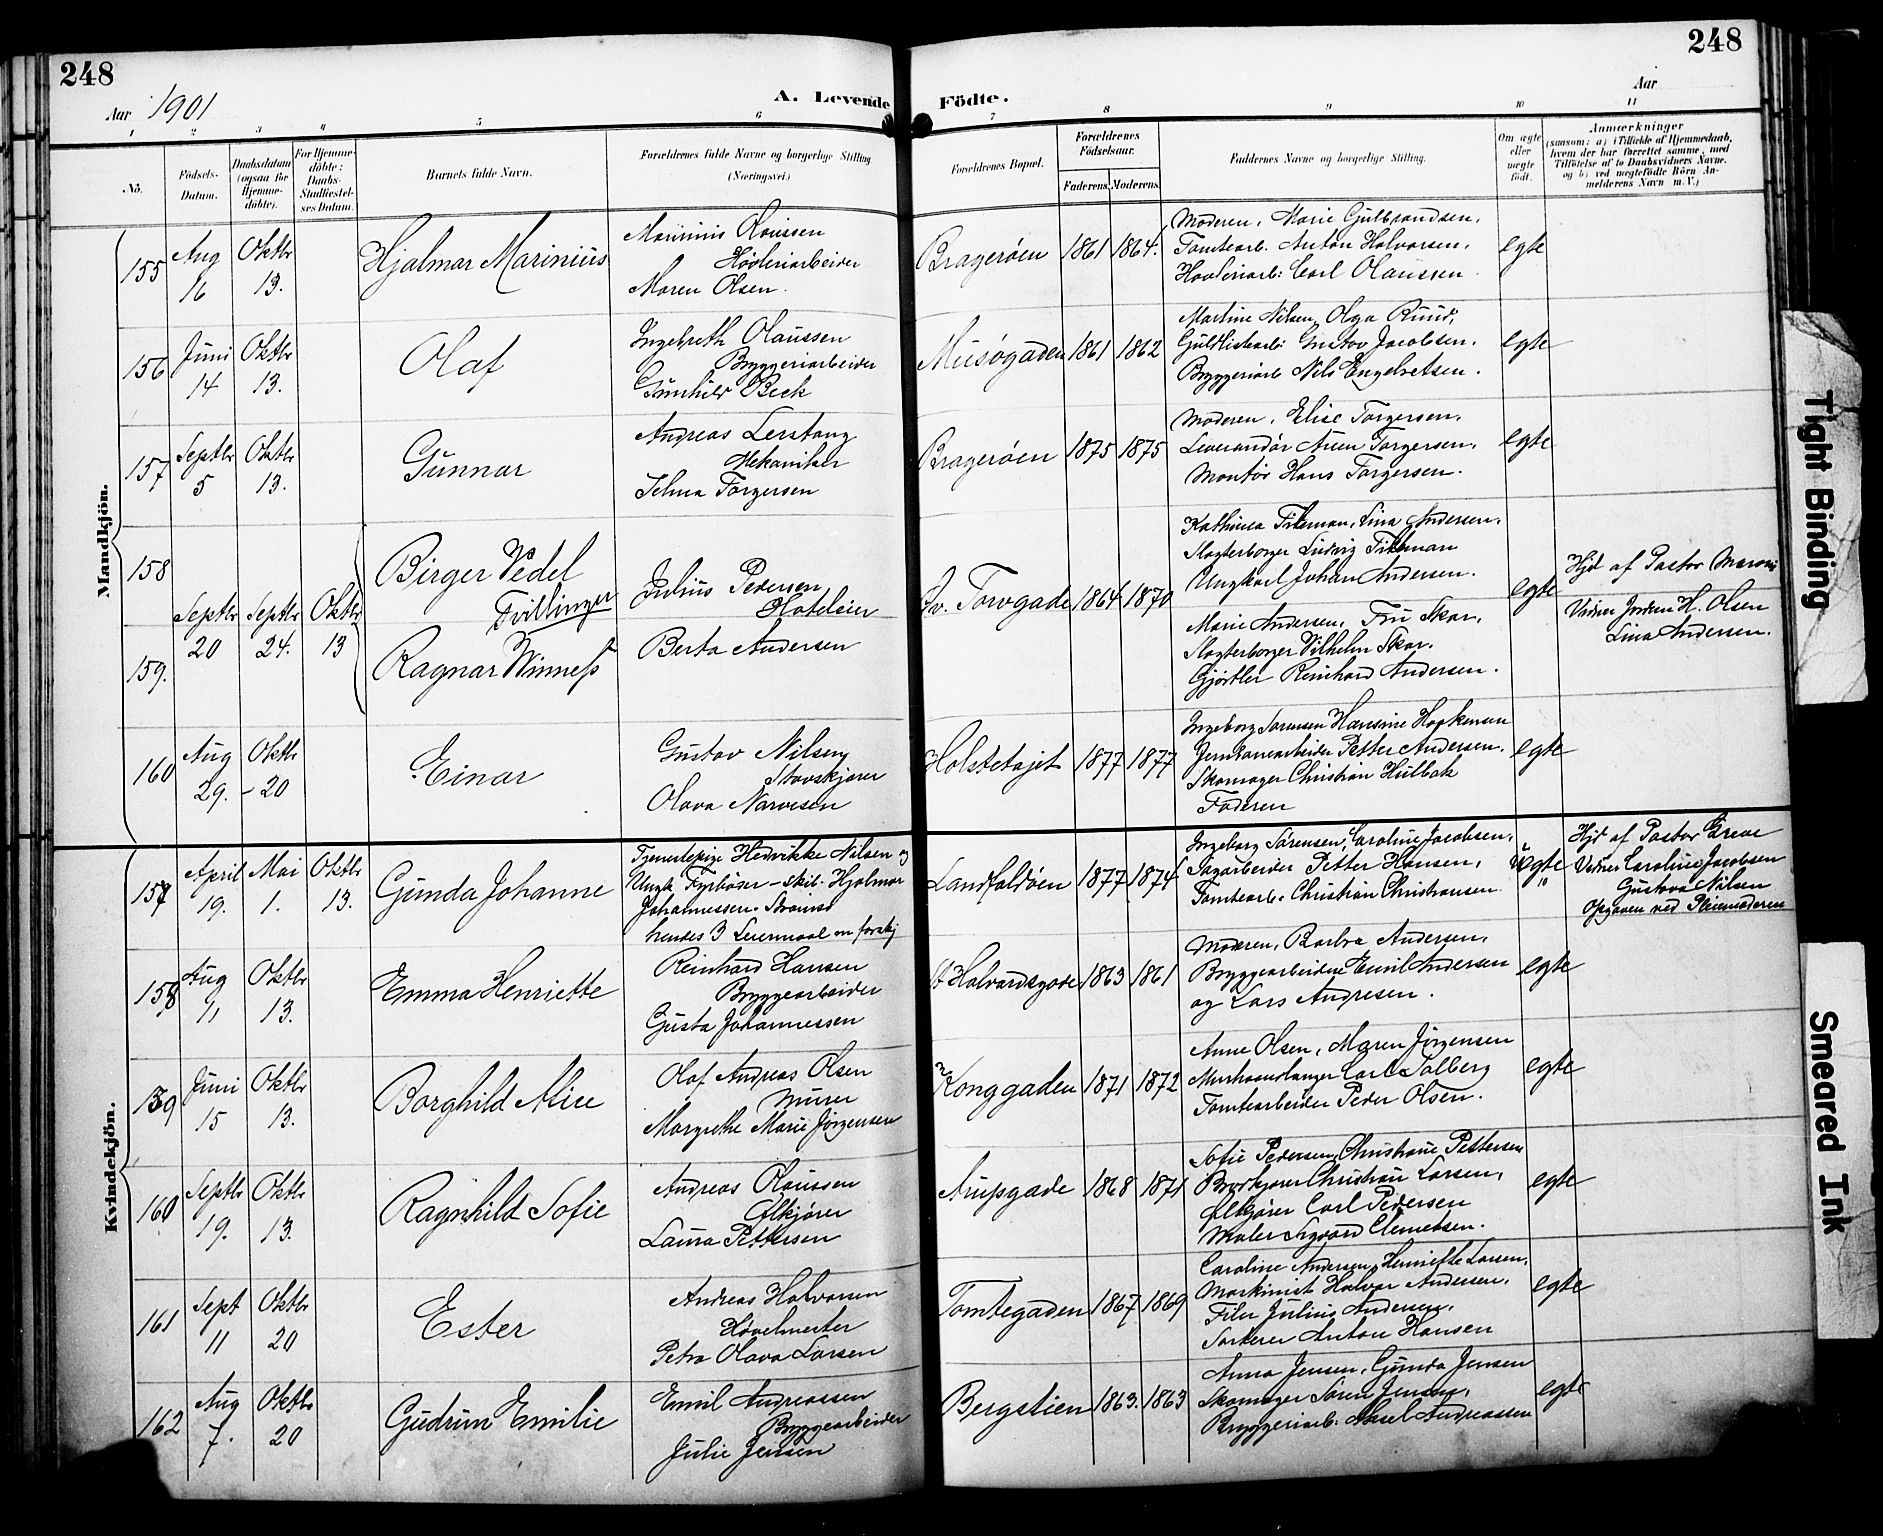 248
248
Aar 1901
A. Levende Födte.
Aar
1 2 3 4 5 6 7 8 9 10 11
No.
Födsels-Datum.
Daabsdatum (ogsaa for Hjemmedöbte).
For Hjemmedöbte: Daabs-Stadfæstelses Datum.
Barnets fulde Navn.
Forældrenes fulde Navne og borgerlige Stilling (Næringsvei.)
Forældrenes Bopæl.
Forældrenes Födselsaar.
Faderens. Moderens.
Faddernes Navne og borgerlige Stilling.
Om ægte eller uægte födt.
Anmærkninger
(saasom: a) i Tilfælde af Hjemmedaab, hvem der har forrettet samme, med Tilföielse af to Daabsvidners Navne, og b) ved uægtefödte Börn Anmelderens Navn m. V.)
Mandkjön.
155 Aug 16 Oktbr 13. Hjalmar Marinius
Marinius Olaussen
Høvleriarbeider
Maren Olsen.
Bragerøen 1861 1864.
Moderen, Marie Gulbrandsen,
Tomtearb. Anton Halvorsen,
Høvleriarb: Carl Olaussen.
egte
156 Juni 14 Oktbr 13. Olaf
Ingebreth Olaussen
Bryggeriarbeider
Gunhild Beck
Musøgaden 1861 1862
Martine Nilsen, Olga Ruud,
Guldlistearb: Gustav Jacobsen.
Bryggeriarb Nils Engebretsen.
egte
157 Septbr 5 Oktbr 13. Gunnar
Andreas Lerstang
Mekaniker
Selma Torgersen
Bragerøen 1875 1875
Moderen, Elise Torgersen.
Leverandør Torgersen,
Montør Hans Torgersen.
egte
158
159.
Septbr 20 Septbr 24. Oktbr 13
Birger Vedel
Tvillinger
Ragnar Winness
Julius Pedersen
Hoteleier
Berta Andersen
Torvgade 1864 1870
Kathinca Tillman, Lina Andersen,
Slagterborger Ludvig Tillman
Ungkarl Johan Andersen.
Marie Andersen, Fru Skar,
Slagterborger Vilhelm Skar.
Gjørtler Reinhard Andersen.
egte
Hjd af Pastor
Vidner Jordem H. Olsen
Lina Andersen.
160 Aug 29. Oktbr 20 Einar
Gustav Nilsen
Stovskjører
Olava Narvesen
Holstetajet 1877 1877
Ingeborg Sørensen Hansine Haakensen
Jernbanearbeider Petter Andersen.
Skomager Christian Hulbak
Faderen
egte
Kvindekjön.
157 April 19. Mai 1. Oktbr 13. Gunda Johanne
Tjenestepige Hedvikke Nilsen og
Ungk Fyrbøder - skib. Hjalmar
Johannessen. Strømsø
hendes 3 Leiermaal m forskj
Landfaldøen 1877 1874
Ingeborg Sørensen, Caroline Jacobsen,
Sagarbeider Petter Hansen,
Tomtearb. Christian Christiansen
uegte
Hjd af Pastor Greve
Vidner Caroline Jacobsen
Gustava Nilsen
Opgaven ved Pleiemoderen
158 Aug 11, Oktbr 13. Emma Henriette
Reinhard Hansen
Bryggearbeider
Gusta Johannessen
St Halvardsgade 1863 1861
Moderen, Barbra Andersen,
Bryggearbeiderne Emil Andersen
og Lars Andresen.
egte
159 Juni 15 Oktbr 13. Borghild Alice
Olaf Andreas Olsen
Murer
Margrethe Marie Jørgensen
Konggaden 1871 1872
Anne Olsen, Maren Jørgensen
Murhaandlanger Carl Solberg
Tomtearbeider Peder Olsen.
egte
160 Septbr 19. Oktbr 13. Ragnhild Sofie
Andreas Olaussen
Ølkjører
Laura Pettersen
Arupsgade 1868 1871
Sofie Pedersen, Christiane Pettersen
Christian Larsen,
Ølkjører Carl Pedersen
Maler Sigvard Clemetsen.
egte
161 Sept 11 Oktbr 20 Ester
Andreas Halvorsen
Høvelmester
Petra Olava Larsen
Tomtegaden 1867 1869
Caroline Andersen, Henriette Larsen,
Maskinist Halvor Andersen,
Filer Julius Andersen,
Sorterer Anton Hansen
egte
162 Aug 7. Oktbr 20 Gudrun Emilie
Emil Andreassen
Bryggearbeider
Julie Jensen
Bergstien 1863. 1863
Anna Jensen, Gunda Jensen
Skomager Søren Jensen,
Bryggeriarb: Aksel Andreassen
egte
Tight Binding
Smeared Ink